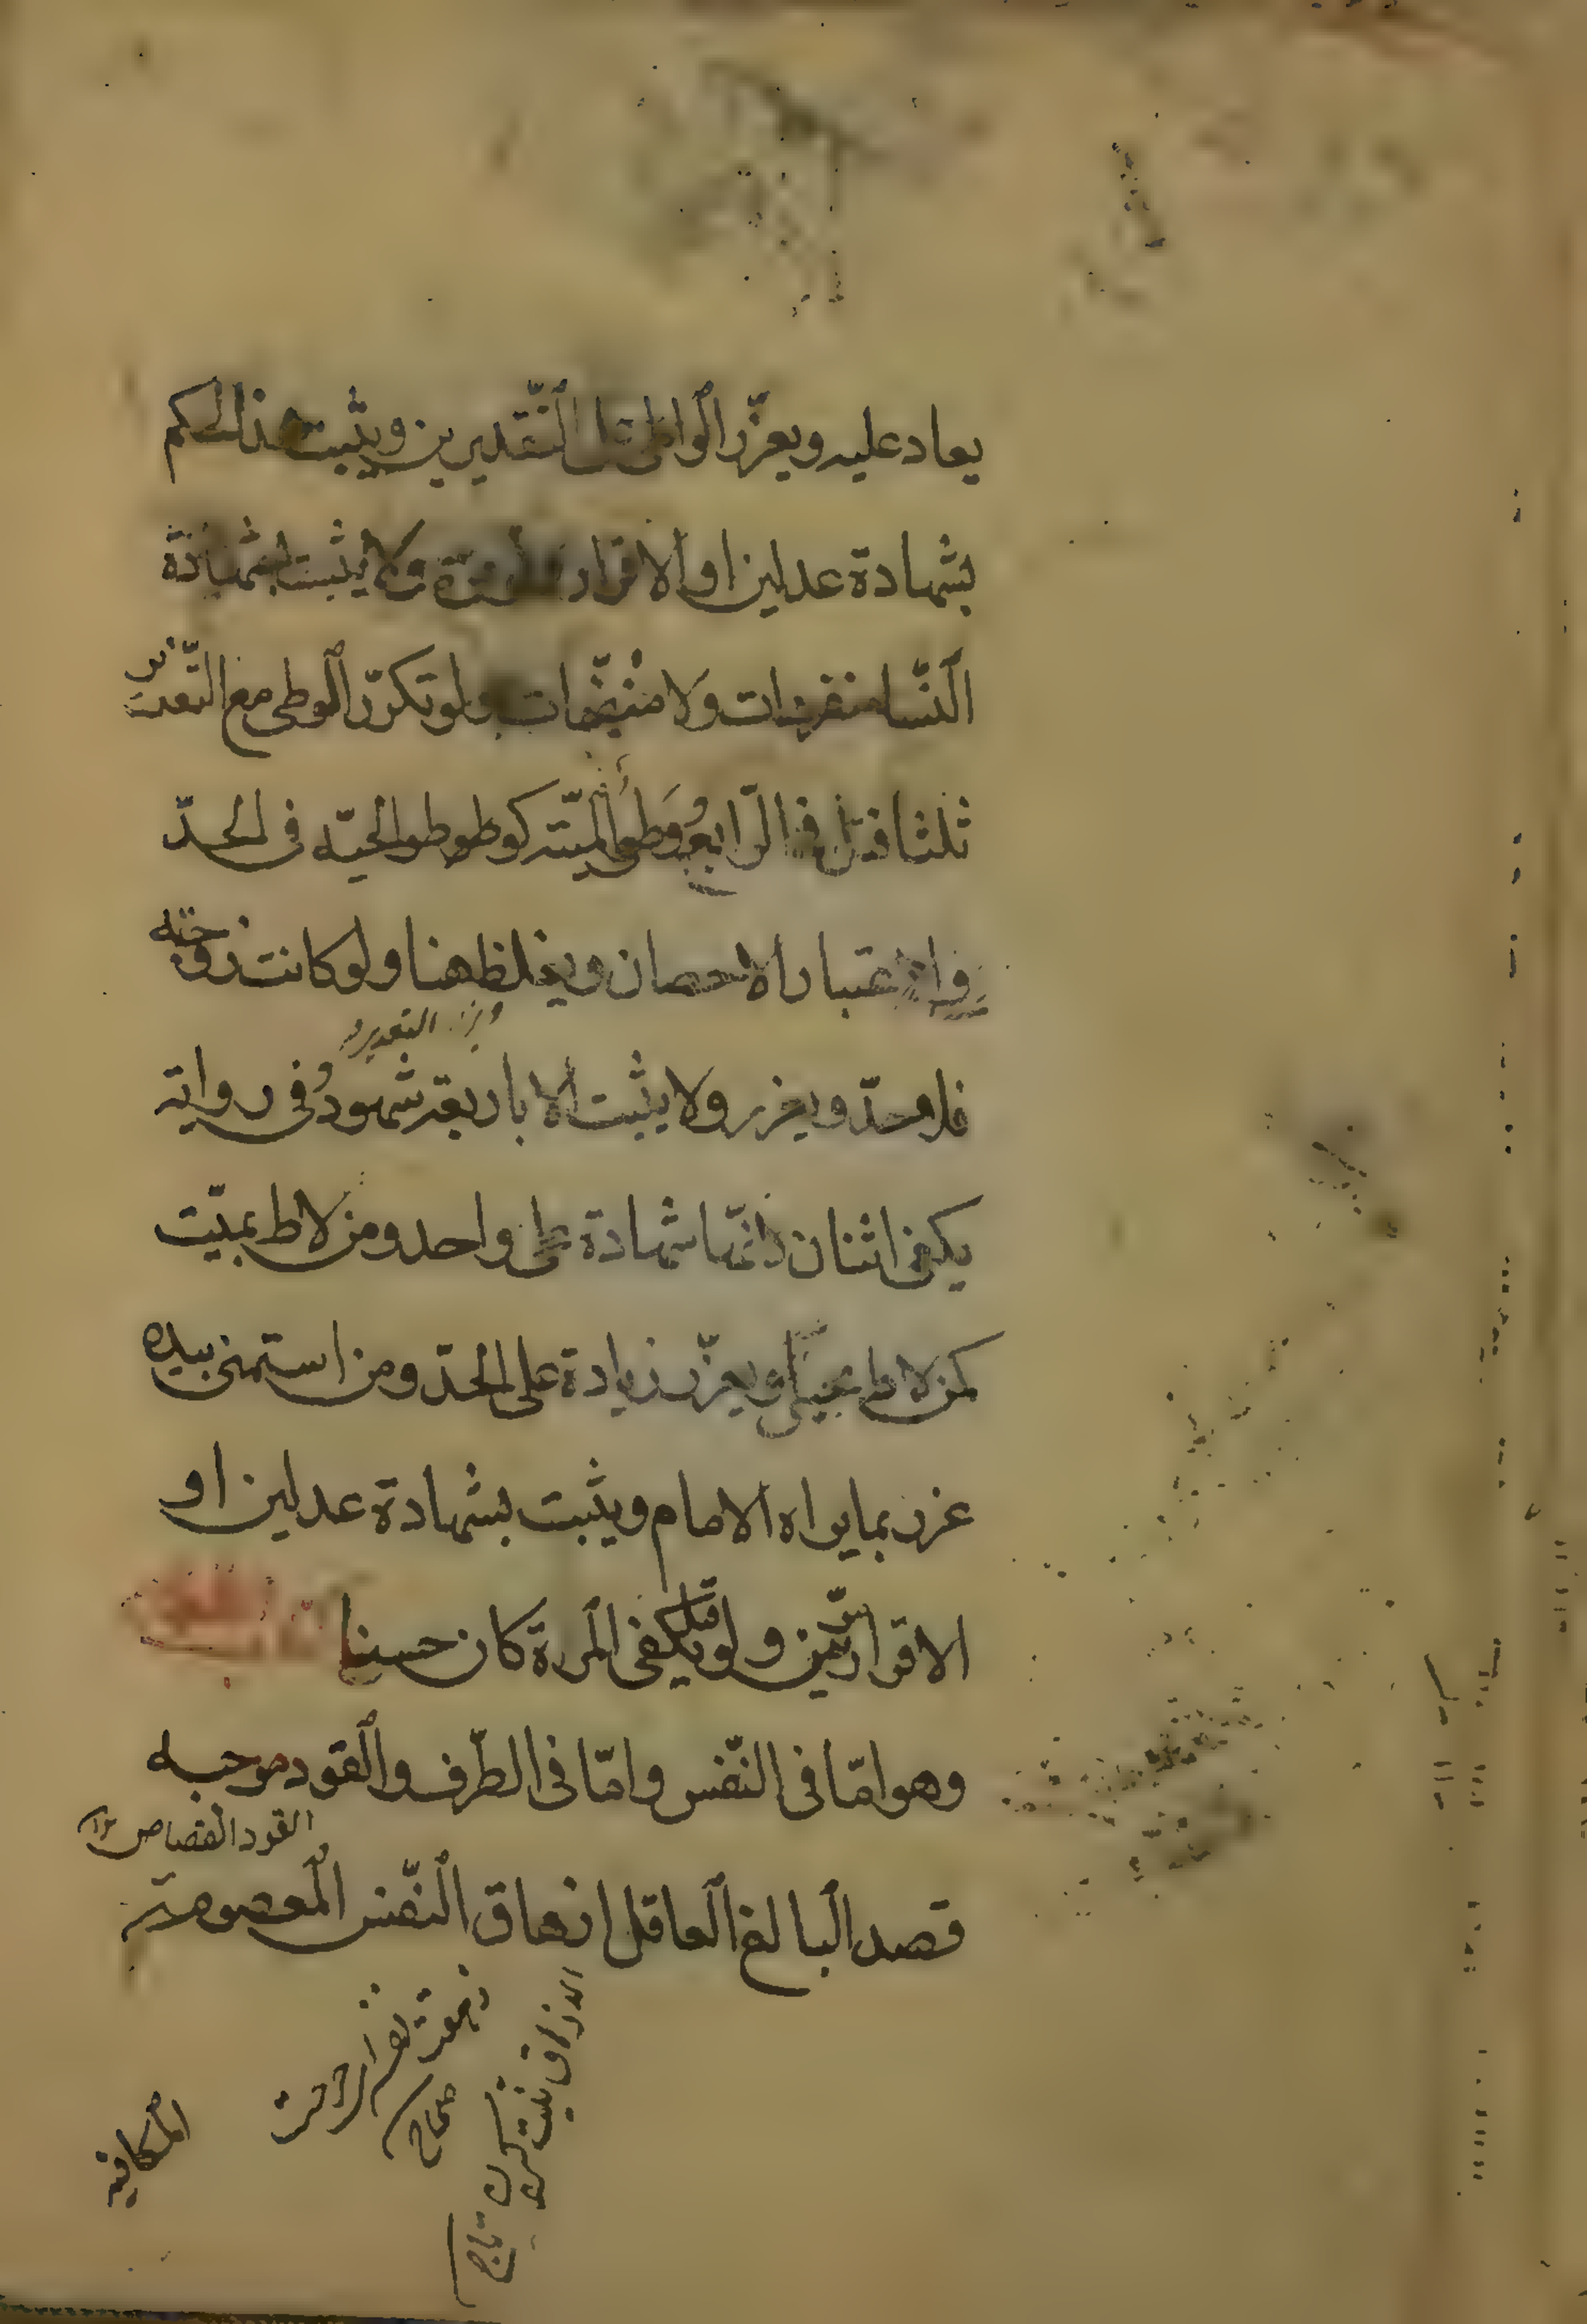 يعاد عليه ويعزّر الواطى على التّقديرين ويثبت هذا الحكم
بشهادة عدلين او الاقرار ولو مرّة ولا يثبت بشهادة
النّسا منفردات ولا منضمّات ولو تكرّر الوطى مع التّعزير
ثلثا قتل فى الرّابعة ووطى الميّتة كوطى الحيّه فى الحدّ
واعتبار الاحصان ويغلظ هنا ولو كانت زوجته
فلا حدّ ويعزر ولا يثبت الا باربعة شهود وفى رواية
يكفى اثنان لانّها شهادة على واحد ومن لاط بميّت
كمن لاط بحىّ ويعزّر زيادة على الحدّ ومن استمنى بيده
عزر بما يراه الامام ويثبت بشهادة عدلين او
الاقرار مرّتين ولو قيل يكفى المرة كان حسنا
وهو امّا فى النّفس وامّا فى الطّرف والقود موجبه
القود القصاص
قصد البالغ العاقل ازهاق النّفس المعصومة
زهقت نفسه
صحاح
تاج
المكافية